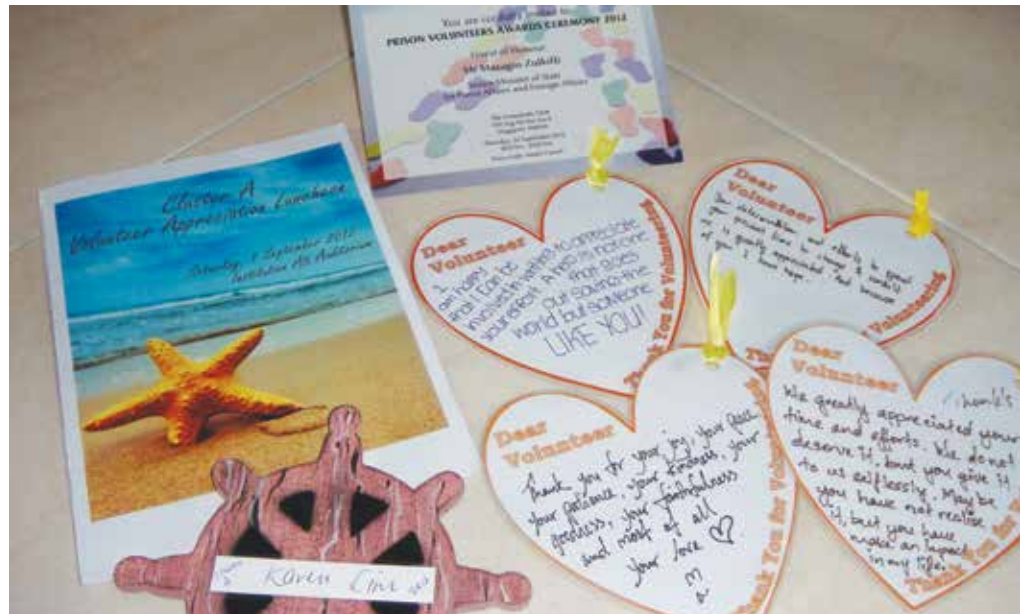 You are cordially invited to
PRISON VOLUNTEERS AWARDS CEREMONY 2012
Guest of Honour
Mr Masagos Zulkifli
Minister of State
for Home Affairs and Foreign Affairs
September 2012
Cluster A
Volunteer Appreciation Luncheon
Saturday, September 2012
Institution A5 Auditorium
Karen Lim
Dear
Volunteer
I
am happy
that I can be
involved in wanting to appreciate
your effort. A hero is not one
that goes
out saving the
world but someone
LIKE YOU!
Thank You for Volunteering
Dear
Volunteer
Your determination and efforts to spend
your precious time to change & contribute
is greatly appreciated. And because
of you, I have hope.
Thank You for Volunteering
Dear
Volunteer
Thank you for your joy, your peace
your guidance, your kindness, your
goodness, your faithfulness
and most of all
your love ♡
Thank You for Volunteering
Dear
Volunteer
Thank's
We greatly appreciated your
time and efforts. We do not
deserve it, but you give it
to us selflessly. Maybe
you have not realise
it, but you have
make an impact
in my life.
Thank You for